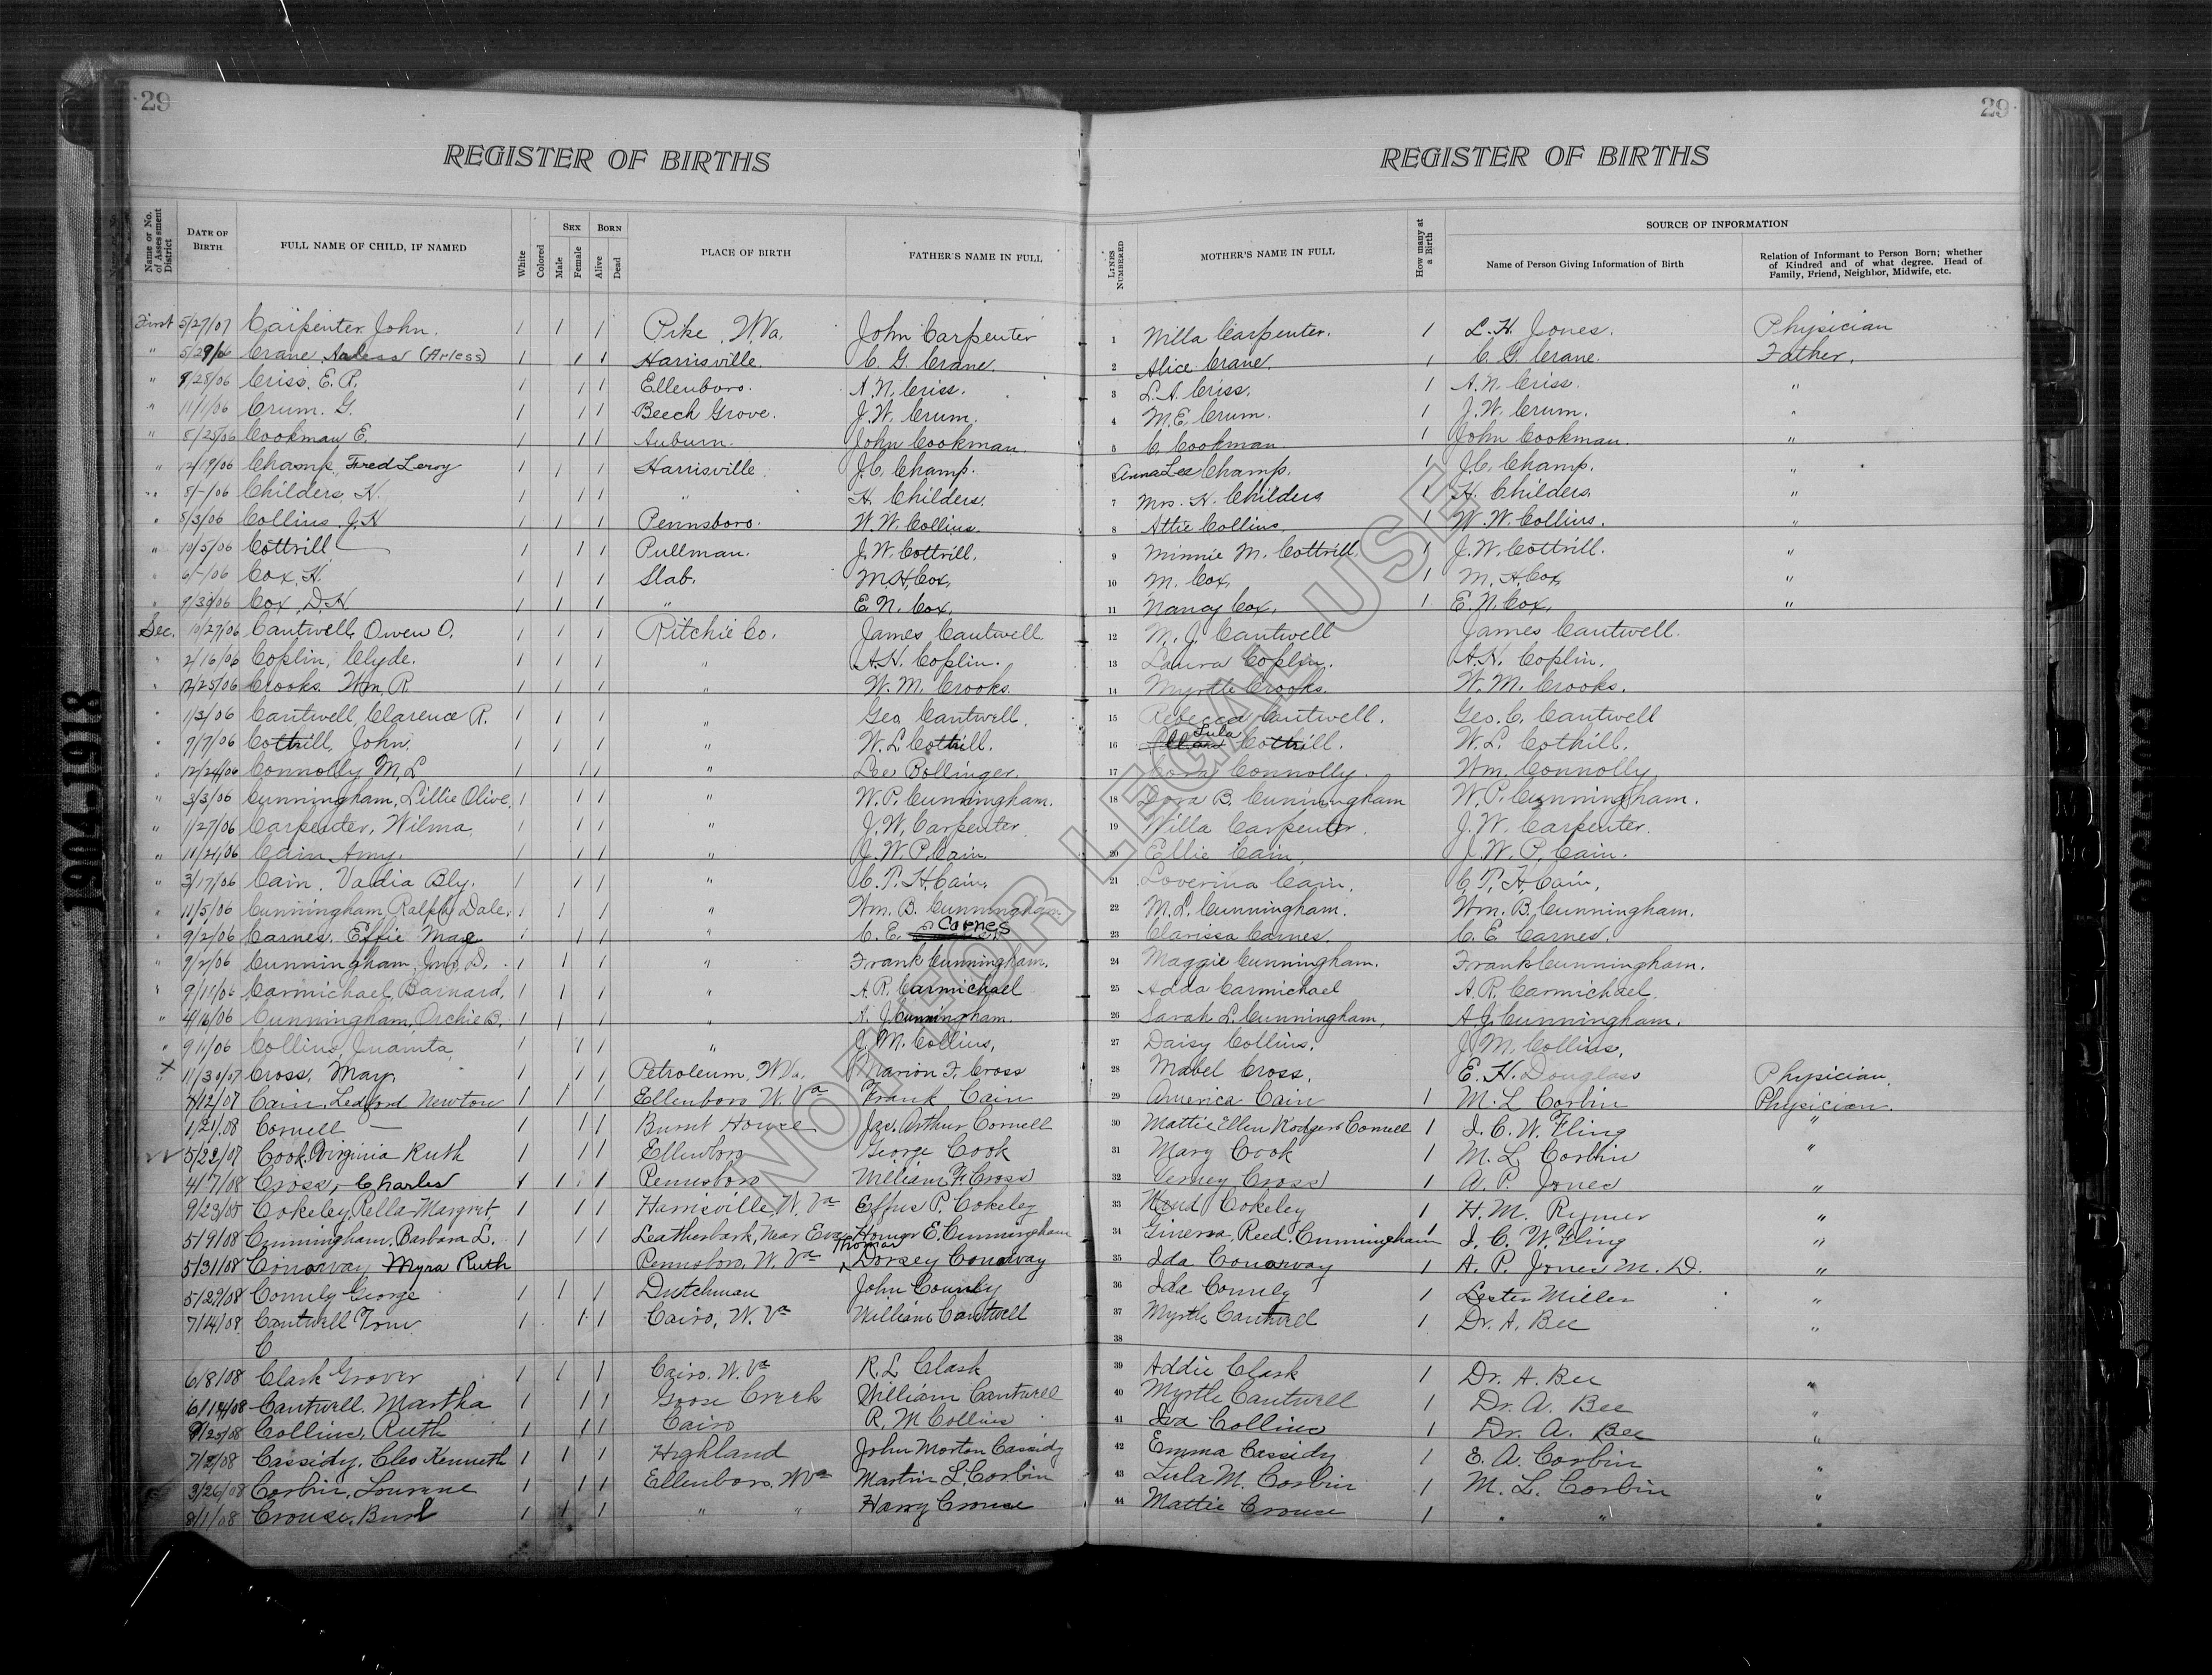 29
29
REGISTER OF BIRTHS
REGISTER OF BIRTHS
Name or No. of Assessment District
DATE OF BIRTH
FULL NAME OF CHILD, IF NAMED
White
Colored
SEX
Male
Female
BORN
Alive
Dead
PLACE OF BIRTH
FATHER'S NAME IN FULL
LINES NUMBERED
MOTHER'S NAME IN FULL
How many at a Birth
SOURCE OF INFORMATION
Name of Person Giving Information of Birth
Relation of Informant to Person Born; whether of Kindred and of what degree. Head of Family, Friend, Neighbor, Midwife, etc.
First 5/27/07 Carpenter John. 1 1 1 Pike, W.Va. John Carpenter 1 Willa Carpenter. 1 L. H. Jones. Physician
" 5/29/06 Crane, (Arless) 1 1 1 Harrisville. C. G. Crane. 2 Alice Crane. 1 C. G. Crane. Father.
" 9/28/06 Criss, E. P. 1 1 1 Ellenboro. A. N. Criss. 3 L. A. Criss. 1 A. N. Criss. "
" 11/1/06 Crum. G. 1 1 1 Beech Grove. J. W. Crum. 4 M. E. Crum. 1 J. W. Crum. "
" 8/25/06 Cookman E. 1 1 1 Auburn. John Cookman. 5 C. Cookman 1 John Cookman. "
" 12/19/06 Champ, Fred Leroy 1 1 1 Harrisville. J. C. Champ. Anna Lee Champ. 1 J. C. Champ. "
" 8/-/06 Childers, H. 1 1 1 " H. Childers. 7 Mrs. H. Childers 1 H. Childers "
" 8/3/06 Collins, J. H 1 1 1 Pennsboro. W. W. Collins. 8 Attie Collins 1 W. W. Collins. "
" 10/5/06 Cottrill — 1 1 1 Pullman. J. W. Cottrill. 9 Minnie M. Cottrill 1 J. W. Cottrill. "
" 6/-/06 Cox, H. 1 1 1 Slab. M. H. Cox, 10 M. Cox, 1 M. H. Cox, "
" 9/30/06 Cox, D. H 1 1 1 " E. N. Cox, 11 Nancy Cox, 1 E. N. Cox, "
Sec. 10/27/06 Cantwell, Owen O. 1 1 1 Ritchie Co. James Cantwell. 12 M. J. Cantwell James Cantwell.
" 2/16/06 Coplin, Clyde. 1 1 1 " A. H. Coplin. 13 Laura Coplin. A. H. Coplin.
" 12/25/06 Crooks. Wm. R. 1 1 1 " W. M. Crooks. 14 Myrtle Crooks. W. M. Crooks.
" 1/3/06 Cantwell, Clarence R. 1 1 1 " Geo Cantwell. 15 Rebecca Cantwell. Geo. C. Cantwell
" 7/7/06 Cottrill, John. 1 1 1 " W. L. Cottrill. 16 Lula Cottrill. W. L. Cottrill.
" 12/24/06 Connolly M. L 1 1 1 " Lee Bollinger. 17 Cora Connolly. Wm. Connolly
" 3/3/06 Cunningham, Lillie Olive, 1 1 1 " W. P. Cunningham. 18 Dora B. Cunningham W. P. Cunningham.
" 1/27/06 Carpenter, Wilma. 1 1 1 " J. W. Carpenter. 19 Willa Carpenter. J. W. Carpenter.
" 11/21/06 Cain Amy. 1 1 1 " J. W. P. Cain. 20 Ellie Cain, J. W. P. Cain.
" 3/17/06 Cain, Vadia Bly. 1 1 1 " C. T. H. Cain. 21 Loverina Cain. C. T. H. Cain,
" 11/5/06 Cunningham, Ralph Dale. 1 1 1 " Wm. B. Cunningham 22 M. L. Cunningham. Wm. B. Cunningham.
" 9/2/06 Carnes, Effie Mae 1 1 1 " C. E. Carnes 23 Clarissa Carnes. C. E. Carnes.
" 9/2/06 Cunningham, Jno. D. 1 1 1 " Frank Cunningham. 24 Maggie Cunningham. Frank Cunningham.
" 9/11/06 Carmichael, Barnard, 1 1 1 " A. R. Carmichael 25 Adda Carmichael A. R. Carmichael.
" 4/16/06 Cunningham, Archie B. 1 1 1 " A. J. Cunningham. 26 Sarah L. Cunningham, A. J. Cunningham.
" 9/1/06 Collins, Juanita, 1 1 1 " J. M. Collins, 27 Daisy Collins. J. M. Collins,
X 11/30/07 Cross, May. 1 1 1 Petroleum, W.Va. Marion F. Cross 28 Mabel Cross. E. H. Douglass Physician.
7/12/07 Cain, Ledford Newton 1 1 1 Ellenboro W. Va Frank Cain 29 America Cain 1 M. L Corbin Physician.
1/21/08 Cornell — 1 1 1 Burnt House Jas. Arthur Cornell 30 Mattie Ellen Rodgers Cornell 1 I. C. W. Fling "
5/22/07 Cook, Virginia Ruth 1 1 1 Ellenboro George Cook 31 Mary Cook 1 M. L Corbin "
4/7/08 Cross, Charles 1 1 1 Pennsboro William F. Cross 32 Verney Cross 1 A. P. Jones "
9/23/05 Cokeley, Rella Margret 1 1 1 Harrisville, W. Va Effus P. Cokeley 33 Maud Cokeley 1 H. M. Rymer "
5/9/08 Cunningham, Barbara L. 1 1 1 Leatherbark, Near Eva Homer E. Cunningham 34 Ginevra, Reed, Cunningham 1 I. C. W. Fling "
5/31/08 Conaway Myra Ruth Pennsboro, W. Va Thomas Dorsey Conaway 35 Ida Conaway 1 A. P. Jones M. D. "
5/29/08 Connely George 1 1 1 Dutchman John Connely 36 Ida Connely 1 Lester Miller "
7/14/08 Cantwell Tom 1 1 1 Cairo, W. Va William Cantwell 37 Myrtle Cantwell 1 Dr. A. Bee "
C 38
6/8/08 Clark Grover 1 1 1 Cairo, W. Va R. L Clark 39 Addie Clark 1 Dr. A. Bee "
6/14/08 Cantwell, Martha 1 1 1 Goose Creek William Cantwell 40 Myrtle Cantwell 1 Dr. A. Bee "
9/25/08 Collins, Ruth 1 1 1 Cairo R. M Collins 41 Iva Collins 1 Dr. A. Bee "
7/2/08 Cassidy, Cleo Kenneth 1 1 1 Highland John Morton Cassidy 42 Emma Cassidy 1 E. A. Corbin "
3/26/08 Corbin, Lourene 1 1 1 Ellenboro, W Va Martin L. Corbin 43 Lula M. Corbin 1 M. L. Corbin "
8/1/08 Crouse, Burl 1 1 1 " " Harry Crouse 44 Mattie Crouse 1 " " "
NOT FOR LEGAL USE
1904-1918